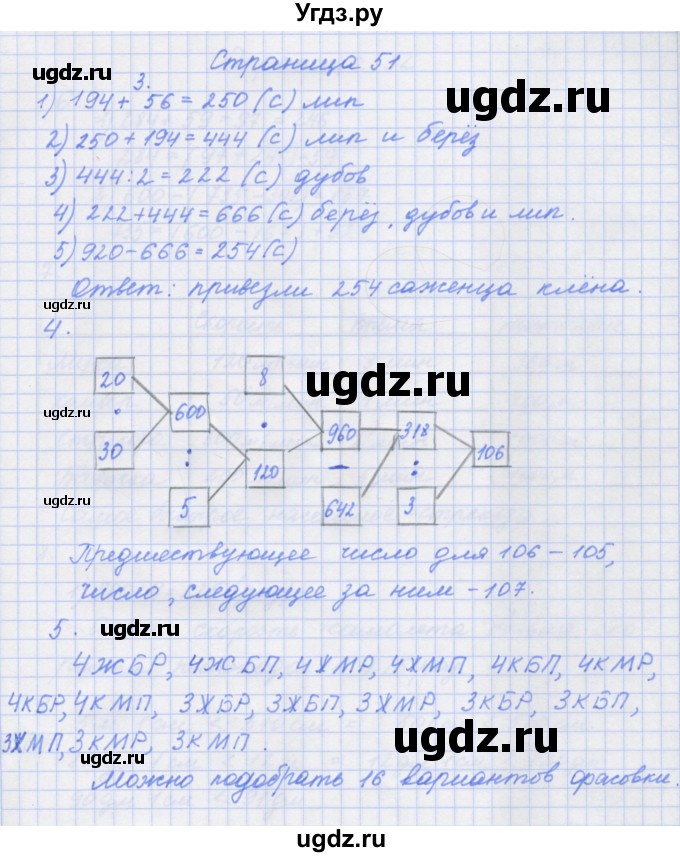 Угдз.ру
Страница 51
ugdz.ru
ugdz.ru
3.
1) 194 + 56 = 250 (с) лип
2) 250 + 194 = 444 (с) лип и берёз
ugdz.ru
3) 444 : 2 = 222 (с) дубов
4) 222 + 444 = 666 (с) берёз, дубов и лип.
5) 920 - 666 = 254 (с)
Ответ: привезли 254 саженца клёна.
ugdz.ru
4.
20 8
ugdz.ru
· 600 · 960 318
30 : 120 - : 106
5 642 3
ugdz.ru
Предшествующее число для 106 - 105,
число, следующее за ним - 107.
5.
ugdz.ru
4ЖБР, 4ЖБП, 4ЖМР, 4ЖМП, 4КБП, 4КМР,
4КБР, 4КМП, 3ЖБР, 3ЖБП, 3ЖМР, 3КБР, 3КБП,
3ЖМП, 3КМР, 3КМП.
ugdz.ru
ugdz.ru
Можно подобрать 16 вариантов фасовки.
ugdz.ru